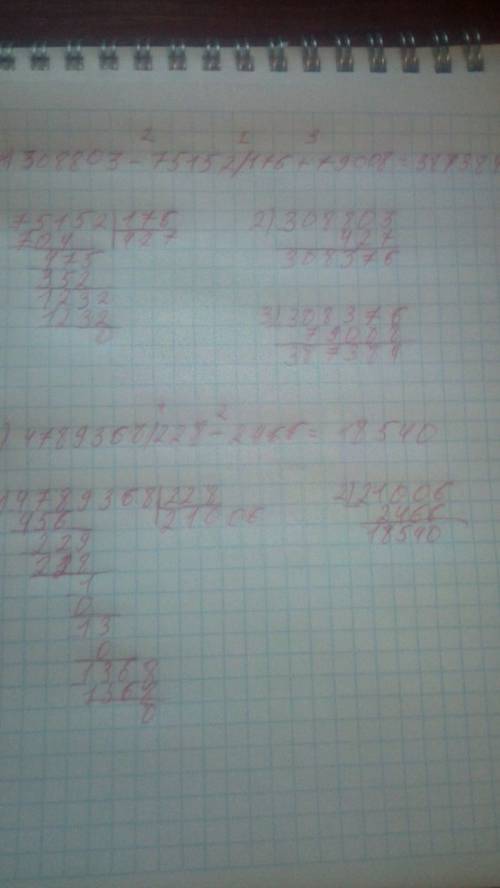 2 1 3
308803 - 75152/176 + 79008 = 387384
75152 | 176
704 | 427
475
352
1232
1232
0
2) 308803
427
308376
3) 308376
79008
387384
1 2
) 4789368/228 - 2466 = 18540
4789368 | 228
456 | 21006
229
228
1
0
13
0
1368
1368
0
2) 21006
2466
18540